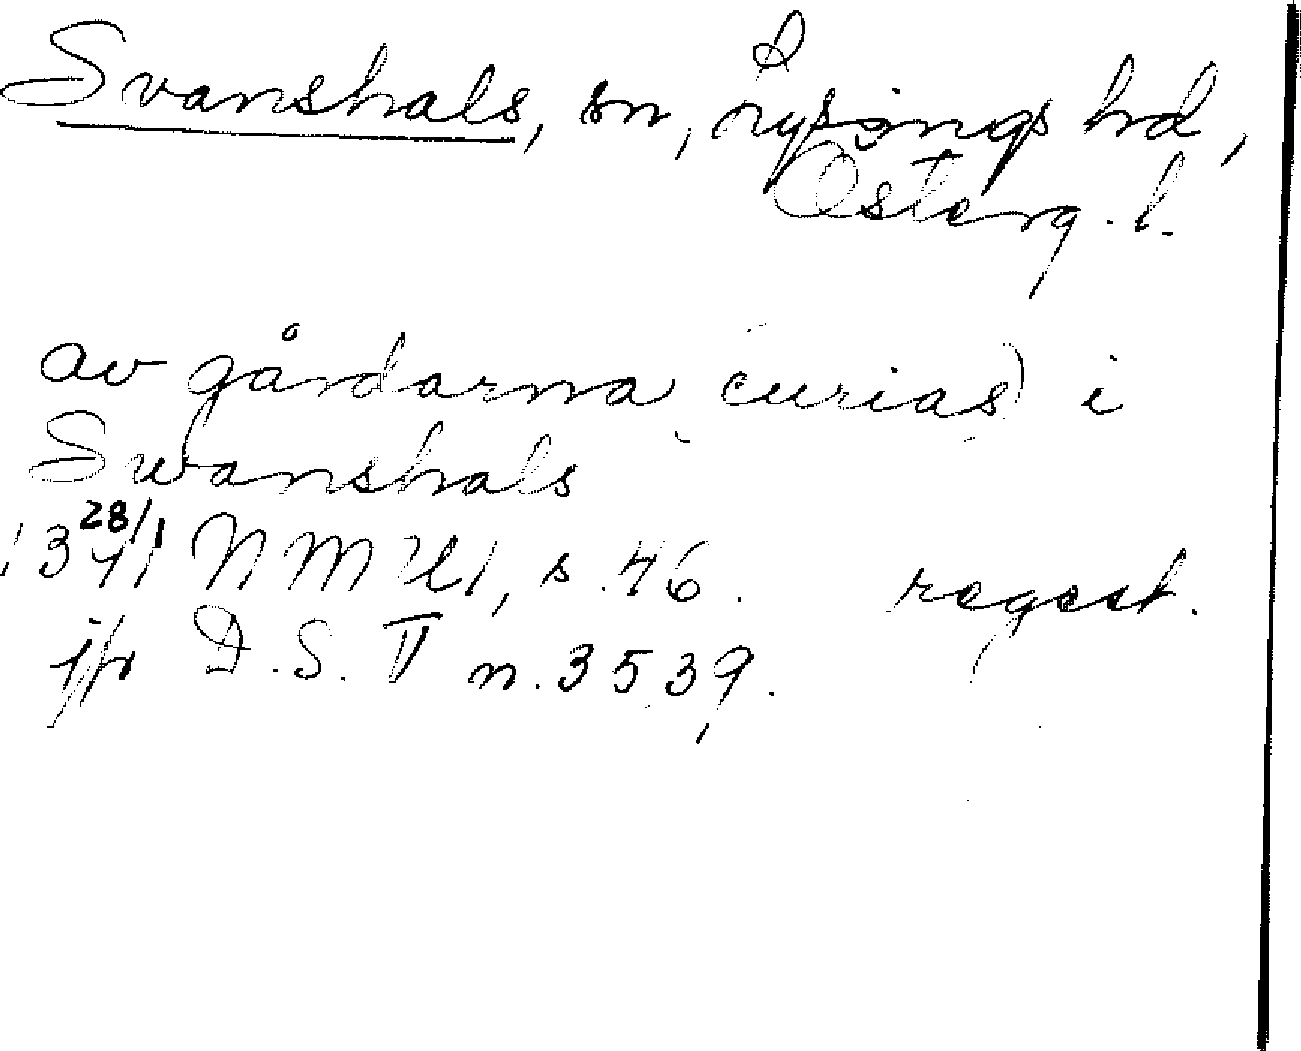 Svanshals, sn, Lysings hd,
Österg. l.
av gårdarna (curias) i
Swanshals
1341 28/1 NMU1, s. 46. regest.
jfr D.S. V n. 3539.